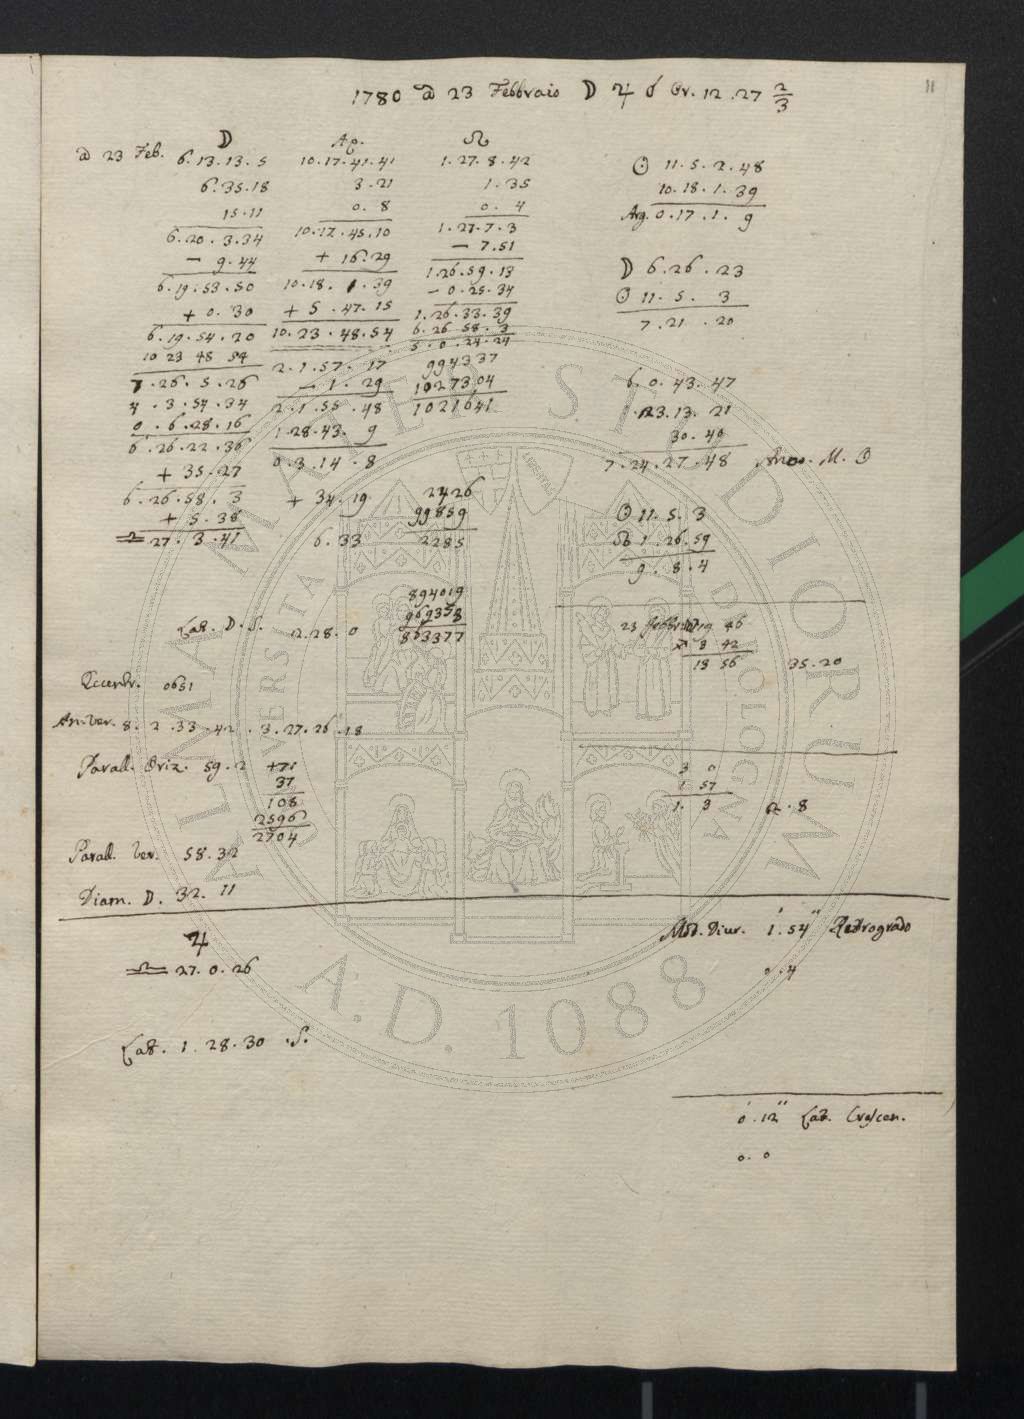 11
1780 a 23 Febbraio ☽ ♃ ☌ Gr. 12.27 2/3
☽ Ap. ☊
a 23 Feb. 6.13.13.5 10.17.41.41 1.27.8.42
6.35.18 3.21 1.35
15.11 0.8 0.4
6.20.3.34 10.17.45.10 1.27.7.3
− 9.44 + 16.29 − 7.51
6.19.53.50 10.18.1.39 1.26.59.13
+ 0.30 + 5.47.15 − 0.25.34
6.19.54.20 10.23.48.54 1.26.33.39
10 23 48 54 6.26.58.3
5.0.24.24
7.26.5.26 2.1.57.17 994337
4.3.54.34 − 1.29 1027304
0.6.28.16 2.1.55.48 1021641
6.26.22.36 1.28.43.9
+ 35.27 0.3.14.8
6.26.58.3 + 34.19 2426
+ 5.38 99859
♎ 27.3.41 6.33 2285
894019
969358
863377
Lat. D. S. 2.28.0
Eccentr. 0651
An. ver. 8.2.33.42.3.27.26.18
Parall. Oriz. 59.2 +71
37
108
2596
2704
Parall. ver. 58.32
Diam. D. 32.11
☉ 11.5.2.48
10.18.1.39
Arg. 0.17.1.9
☽ 6.26.23
☉ 11.5.3
7.21.20
6.0.43.47
1.23.13.21
30.40
7.24.27.48 Ano. M. ☽
☉ 11.5.3
☊ 1.26.59
9.8.4
23 Febbraio 19 46
3 42
13 56 35.20
3 0
1 57
1.3 2.8
♃
♎ 27.0.26
Lat. 1.28.30 .S.
Mot. Diur. 1'.54'' Retrogrado
0.4
0'.12'' Lat. Crescen.
0.0
ALMA MATER STUDIORUM
UNIVERSITÀ DI BOLOGNA
A.D. 1088